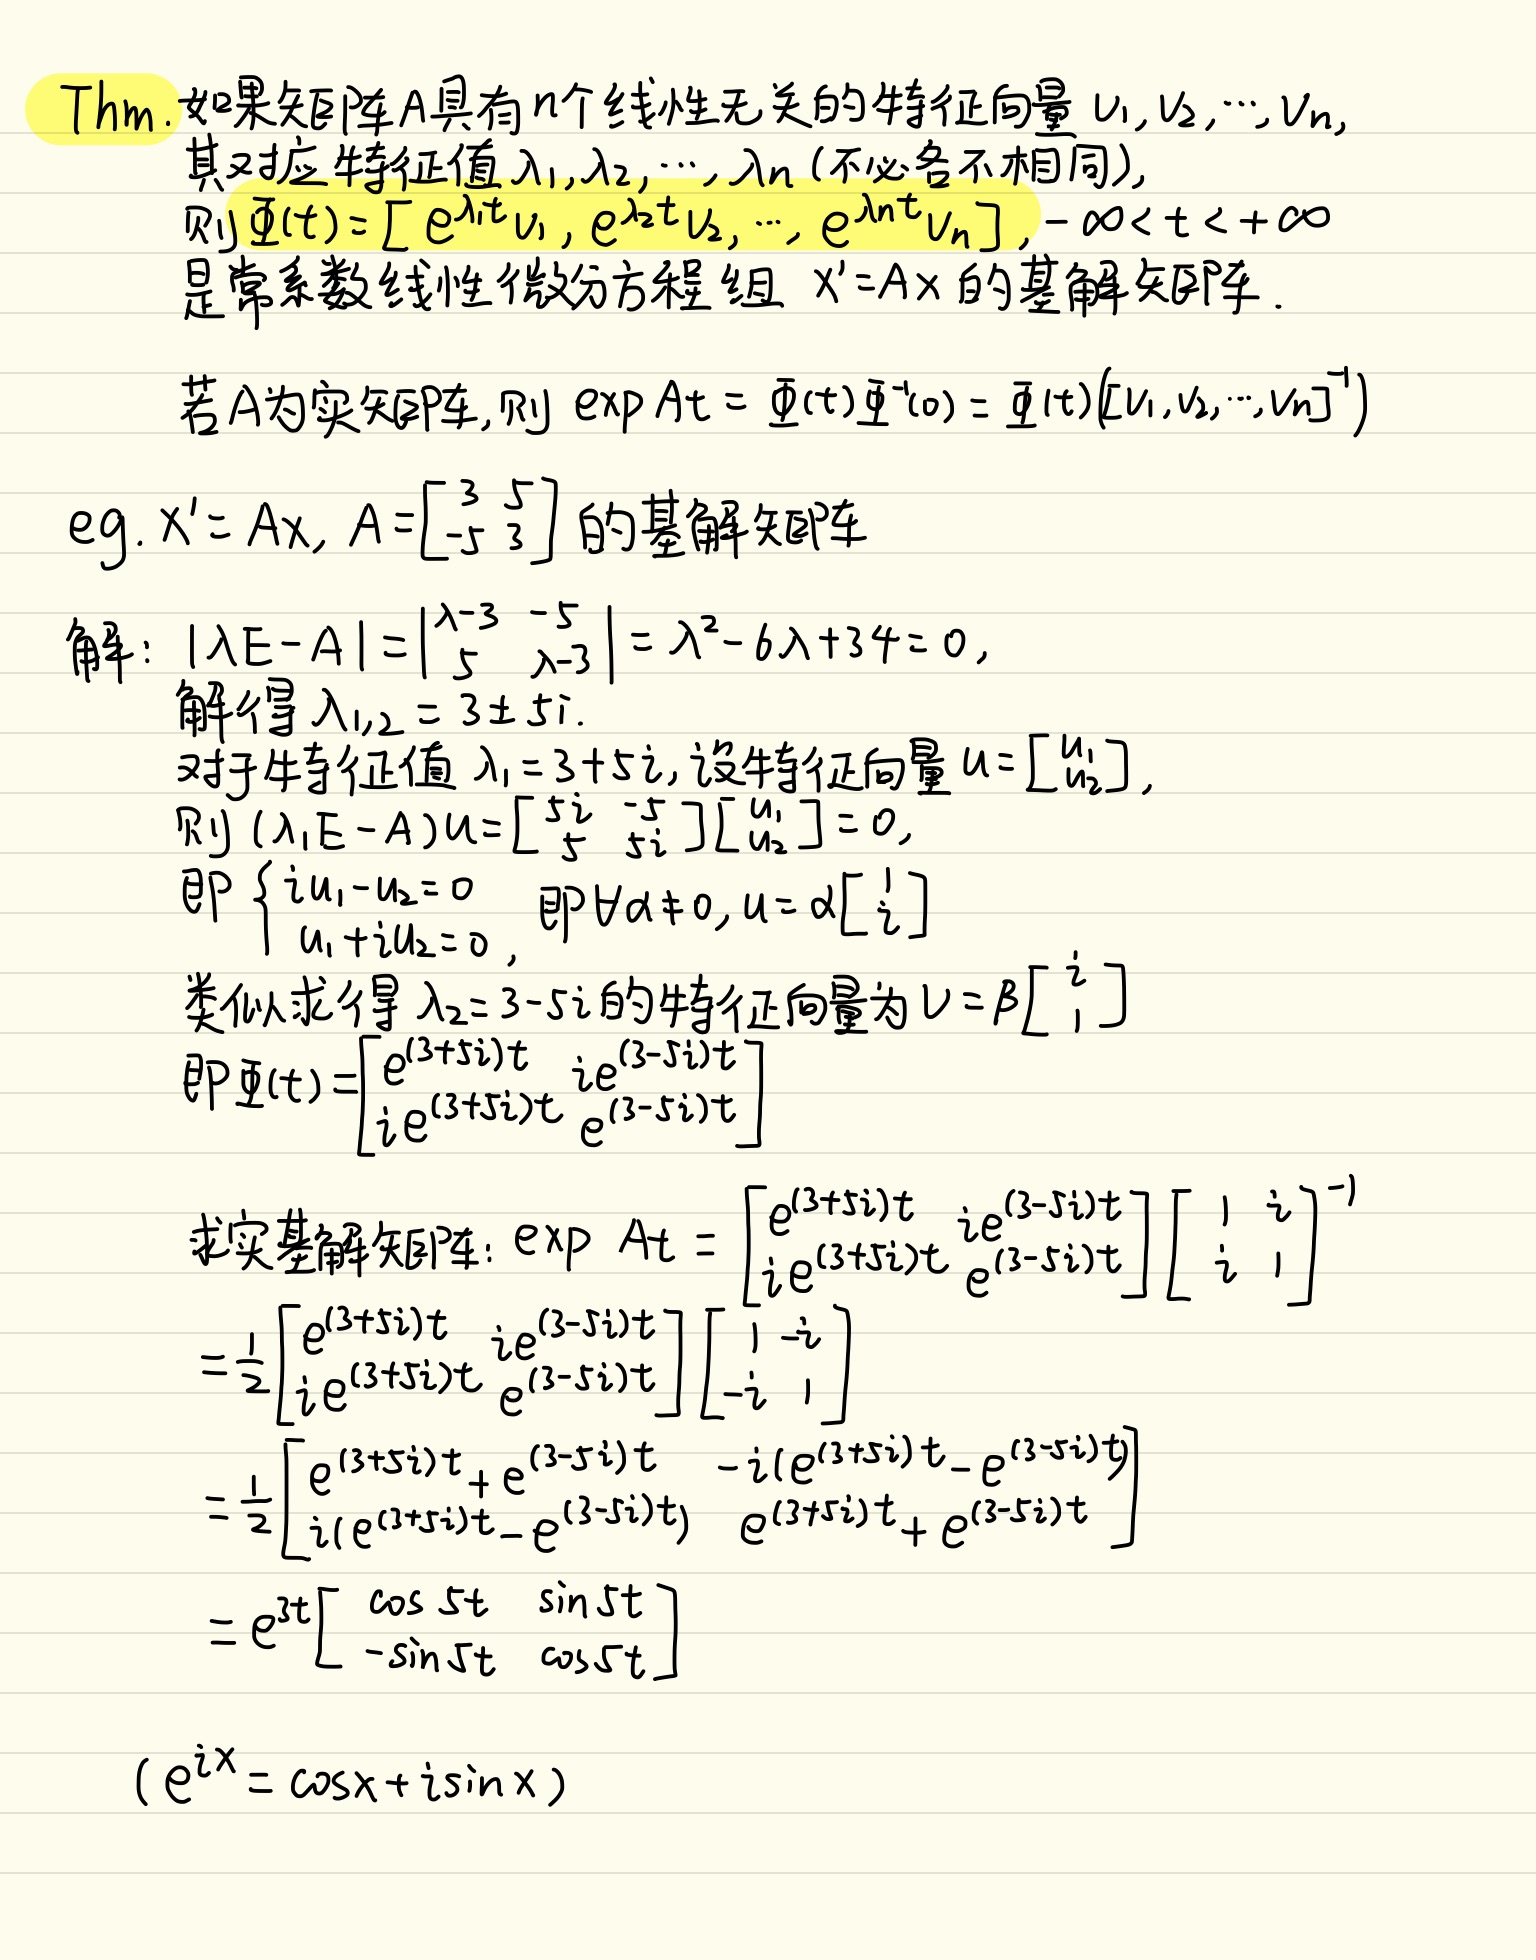 Thm. 如果矩阵A具有n个线性无关的特征向量 v₁, v₂, ⋯, vₙ,
其对应特征值 λ₁, λ₂, ⋯, λn (不必各不相同),
则 Φ(t) = [ e^{λ₁t}v₁, e^{λ₂t}v₂, ⋯, e^{λnt}vₙ ], -∞ < t < +∞
是常系数线性微分方程组 x' = Ax 的基解矩阵.
若A为实矩阵, 则 exp At = Φ(t)Φ⁻¹(0) = Φ(t)([v₁, v₂, ⋯, vₙ]⁻¹)
eg. x' = Ax, A = [3 5; -5 3] 的基解矩阵
解: |λE-A| = |λ-3 -5; 5 λ-3| = λ²-6λ+34 = 0,
解得 λ₁,₂ = 3±5i.
对于特征值 λ₁ = 3+5i, 设特征向量 u = [u₁; u₂],
则 (λ₁E-A)u = [5i -5; 5 5i][u₁; u₂] = 0,
即 { iu₁-u₂=0; u₁+iu₂=0, 即∀α≠0, u = α[1; i]
类似求得 λ₂=3-5i 的特征向量为 v = β[i; 1]
即Φ(t) = [e^{(3+5i)t} ie^{(3-5i)t}; ie^{(3+5i)t} e^{(3-5i)t}]
求实基解矩阵: exp At = [e^{(3+5i)t} ie^{(3-5i)t}; ie^{(3+5i)t} e^{(3-5i)t}][1 i; i 1]⁻¹
= 1/2 [e^{(3+5i)t} ie^{(3-5i)t}; ie^{(3+5i)t} e^{(3-5i)t}][1 -i; -i 1]
= 1/2 [e^{(3+5i)t}+e^{(3-5i)t} -i(e^{(3+5i)t}-e^{(3-5i)t}); i(e^{(3+5i)t}-e^{(3-5i)t}) e^{(3+5i)t}+e^{(3-5i)t}]
= e^{3t}[cos 5t sin 5t; -sin 5t cos 5t]
(e^{ix} = cosx + isinx)